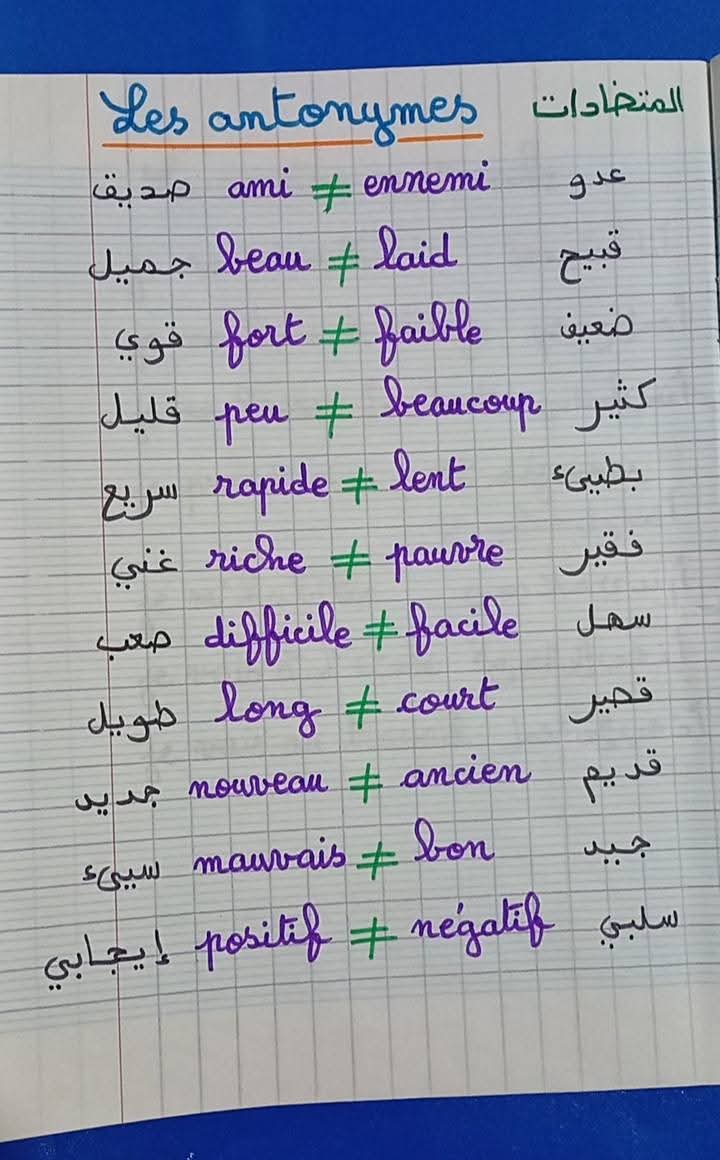 Les antonymes المتضادات
صديق ami ≠ ennemi عدو
جميل beau ≠ laid قبيح
قوي fort ≠ faible ضعيف
قليل peu ≠ beaucoup كثير
سريع rapide ≠ lent بطيىء
غني riche ≠ pauvre فقير
صعب difficile ≠ facile سهل
طويل long ≠ court قصير
جديد nouveau ≠ ancien قديم
سيىء mauvais ≠ bon جيد
إيجابي positif ≠ négatif سلبي